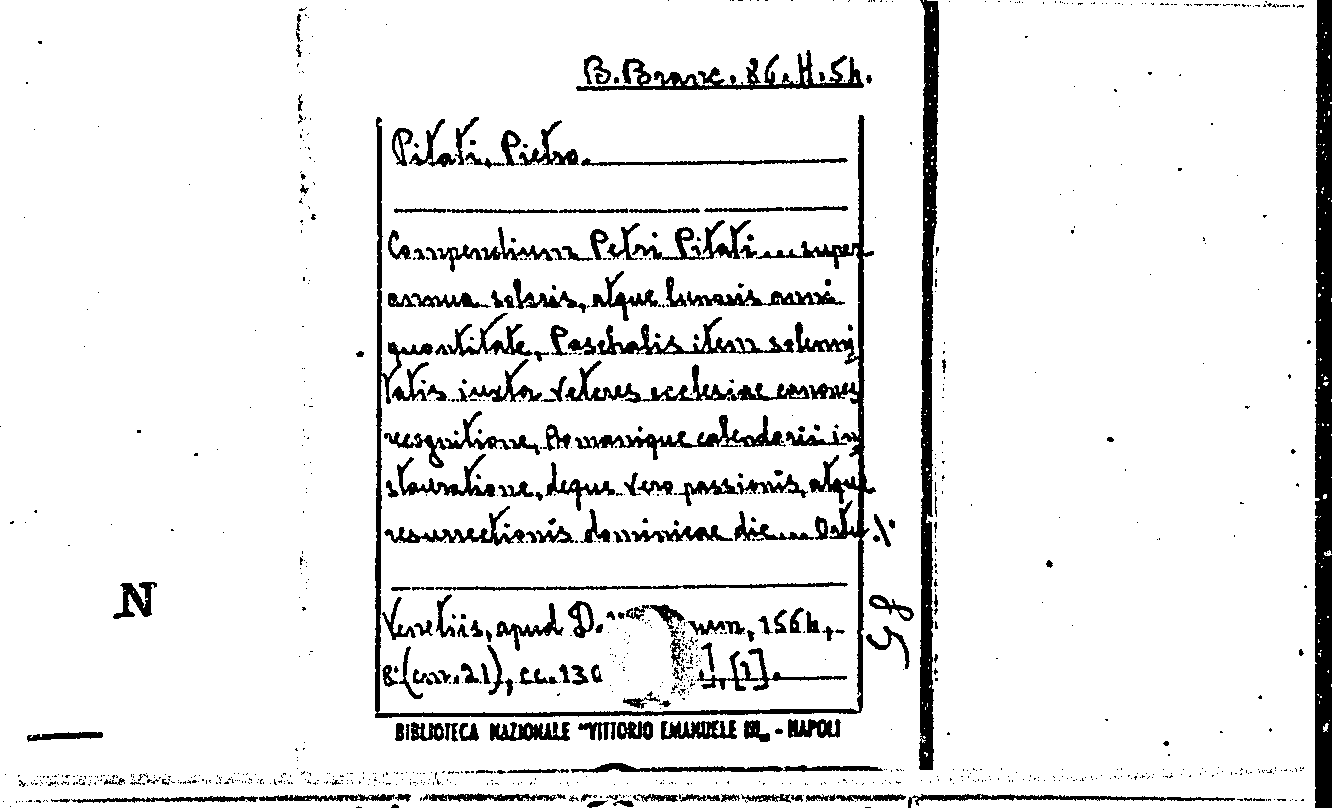 B.Branc. 86.H.54.
Pitati, Pietro.
Compendium Petri Pitati ... super
annua solaris, atque lunaris anni
quantitate, Paschalis item solemni
tatis iuxta veteres ecclesiae canones
recognitione, Romanique calendarii in
stauratione, deque vero passionis, atque
resurrectionis dominicae die ... Ortu ./.
Venetiis, apud D. num, 1564,
8°(cm.21), cc.130 ], [1].
BIBLIOTECA NAZIONALE "VITTORIO EMANUELE III„ - NAPOLI
N